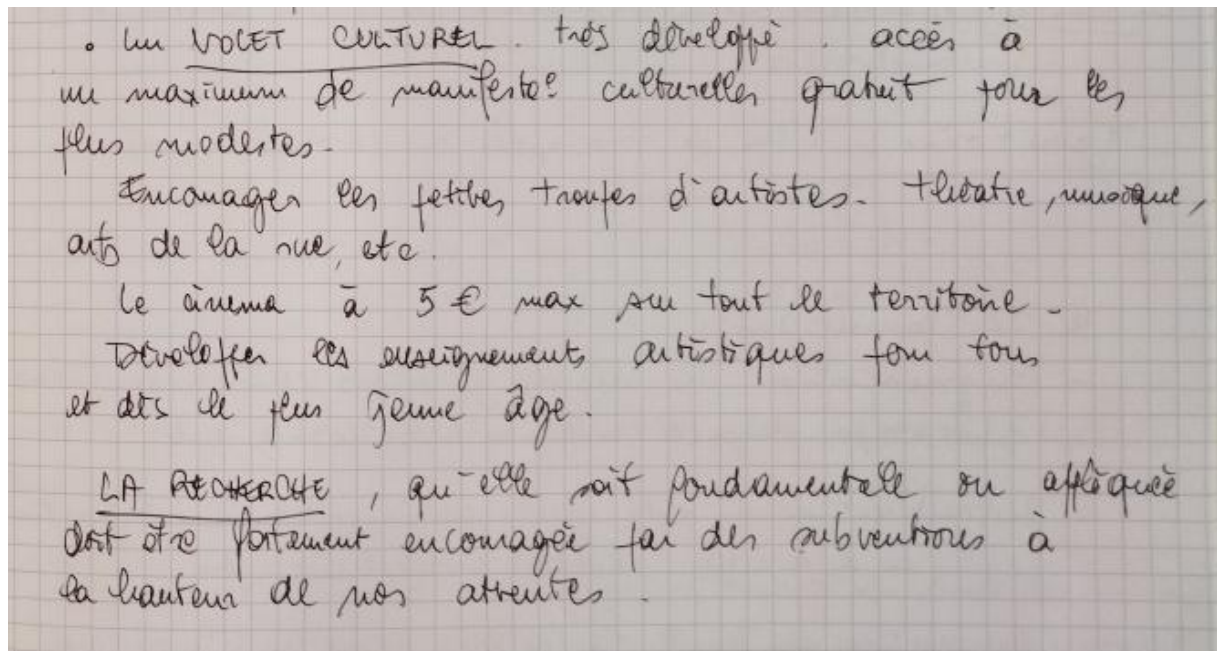 • Un VOLET CULTUREL. très développé. accès à
un maximum de manifesto° culturelles gratuit pour les
plus modestes.
Encourager les petites troupes d'artistes. théâtre, musique,
arts de la rue, etc.
Le cinéma à 5 € max sur tout le territoire.
Développer les enseignements artistiques pour tous
et dès le plus jeune âge.
LA RECHERCHE, qu'elle soit fondamentale ou appliquée
doit être fortement encouragée par des subventions à
la hauteur de nos attentes.